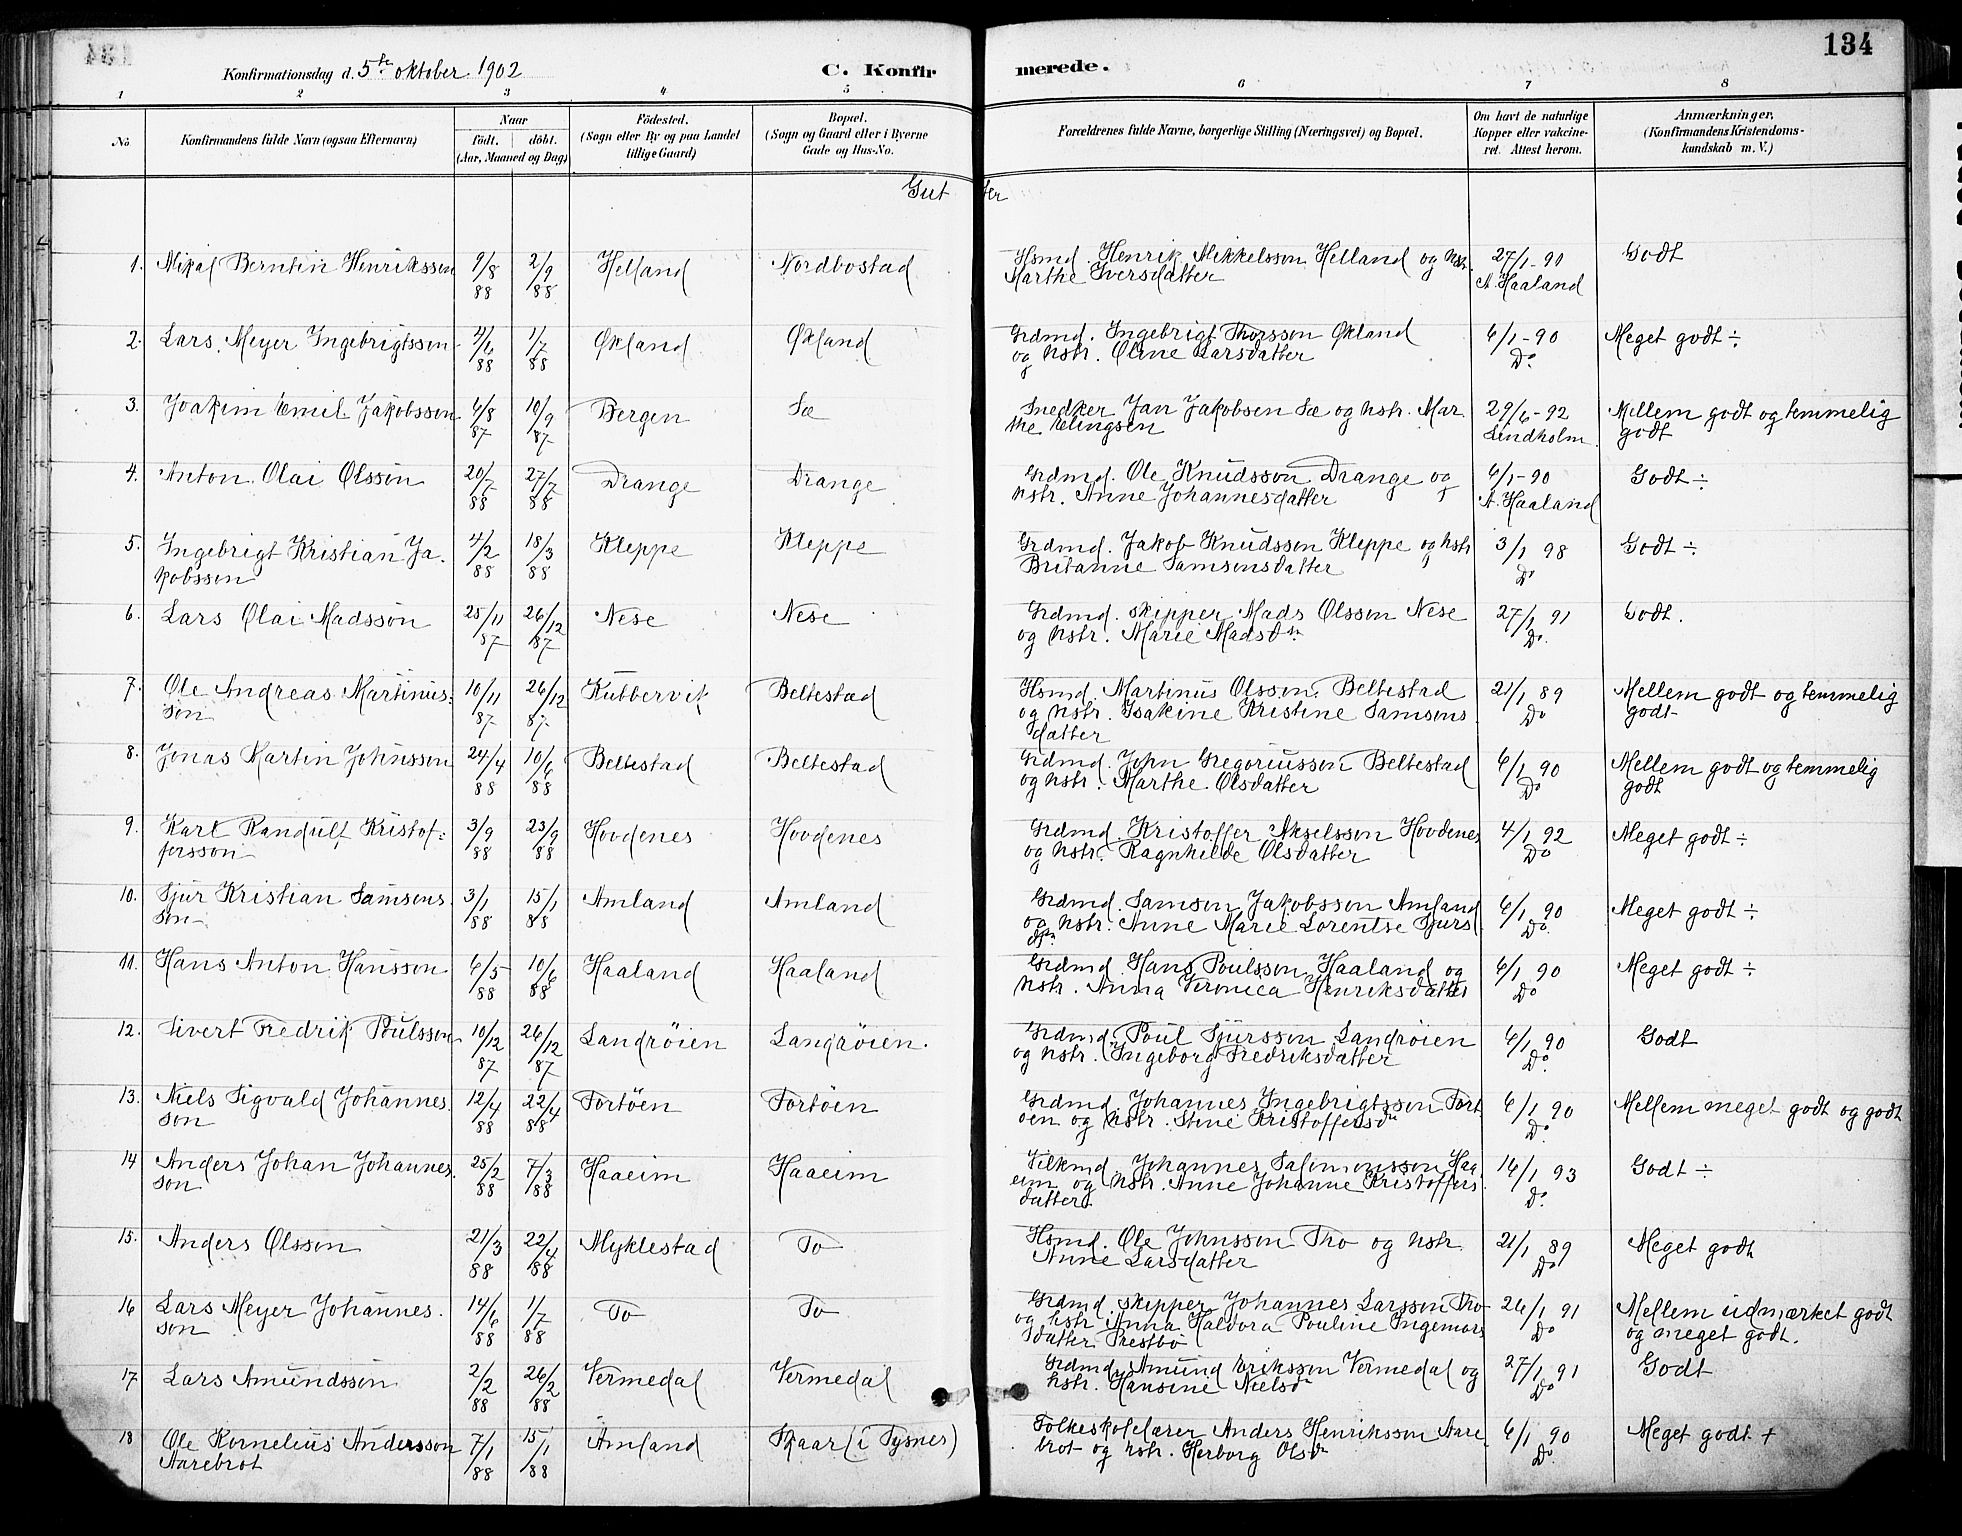 134
Konfirmationsdag d. 5te oktober 1902
C. Konfirmerede.
1 2 3 4 5 6 7 8
No
Konfirmandens fulde Navn (ogsaa Efternavn)
Naar
født. døbt.
(Aar, Maaned og Dag)
Fødested.
(Sogn eller By og paa Landet
tillige Gaard)
Bopæl.
(Sogn og Gaard eller i Byerne
Gade og Hus-No.
Forældrenes fulde Navne, borgerlige Stilling (Næringsvei) og Bopæl.
Om havt de naturlige
Kopper eller vakcine-
ret. Attest herom.
Anmærkninger,
(Konfirmandens Kristendoms-
kundskab m. V.)
Gutter
1. Mikal Berntin Henrikssen 9/8 88 2/9 88 Helland Nordbostad Hsmd. Henrik Mikkelssen Helland og hstr. 27/1-90 Godt
Marthe Iversdatter A. Haaland
2. Lars Meyer Ingebrigtssen 4/6 88 1/7 88 Økland Økland Grdmd. Ingebrigt Thorssen Økland 6/1-90 Meget godt ÷
og hstr. Oline Larsdatter Do
3. Joakim Emil Jakobssen 6/8 87 10/9 87 Bergen Sæ Snedker Jan Jakobsen Sæ og hstr. Mar 29/6-92 Mellem godt og temmelig
the Elingsen Lindholm. godt
4. Anton Olai Olsson 20/7 88 27/7 88 Drange Drange Grdmd. Ole Knudsson Drange og 6/1-90 Godt ÷
hstr. Anne Johannesdatter A. Haaland
5. Ingebrigt Kristian Ja- 4/2 88 18/3 88 Kleppe Kleppe Grdmd. Jakob Knudssen Kleppe og hstr 3/1 98 Godt ÷
kobssen Britanne Samsonsdatter Do
6. Lars Olai Madsson 25/11 87 26/12 87 Nese Nese Grdmd. skipper Mads Olsson Nese 27/1 91 Godt.
og hstr. Marie Madsdtr Do
7. Ole Andreas Martinus- 10/11 87 26/12 87 Kubbervik Beltestad Hsmd. Martinus Olsson Beltestad 21/1 89 Mellem godt og temmelig
son og hstr. Isakine Kristine Samsons Do godt
datter
8. Jonas Martin Johnsson 24/4 88 10/6 88 Beltestad Beltestad Grdmd. John Gregoriussen Beltestad 6/1 90 Mellem godt og temmelig
og hstr. Marthe Olsdatter Do godt
9. Karl Randulf Kristof- 3/9 88 23/9 88 Hovdenes Hovdenes Grdmd. Kristoffer Akselsson Hovdenes 4/1 92 Meget godt ÷
fersson og hstr. Ragnhilde Olsdatter Do
10. Sjur Kristian Samsons 3/1 88 15/1 88 Amland Amland Grdmd. Samson Jakobsson Amland 6/1 90 Meget godt ÷
son og hstr. Anne Marie Lorentse Sjurs Do
dtr.
11. Hans Anton Hansson 6/5 88 10/6 88 Haaland Haaland Grdmd. Hans Poulsson Haaland og 6/1 90 Meget godt ÷
hstr. Anna Veronica Henriksdatter Do
12. Sivert Fredrik Poulsson 10/12 87 26/12 87 Landrøien Landrøien. Grdmd. Poul Sjursson Landrøien 6/1 90 Godt
og hstr. Ingeborg Fredriksdatter Do
13. Niels Sigvald Johannes 12/4 88 22/4 88 Tortöen Tortöen Grdmd. Johannes Ingebrigtsson Tort 6/1 90 Mellem meget godt og godt
son öen og hstr. Stine Kristoffersdtr Do
14 Anders Johan Johannes 25/2 88 7/3 88 Haaeim Haaeim Vilkmd. Johannes Salomonsson Haa 14/1 93 Godt ÷
son eim og hstr. Anne Johanne Kristoffers Do
datter
15. Anders Olsson 21/3 88 22/4 88 Myklestad To Hsmd. Ole Johnsson Tho og hstr. 21/1 89 Meget godt
Anne Larsdatter Do
16 Lars Meyer Johannes 14/6 88 1/7 88 To To Grdmd. skipper Johannes Larsson Tho 26/1 91 Mellem udmærket godt
son og hstr Anna Haldora Pouline Ingemars Do og meget godt.
datter Prestbö
17 Lars Amundssen 2/2 88 26/2 88 Vermedal Vermedal Grdmd. Amund Erikssen Vermedal og 27/1 91 Godt
hstr. Hansine Nielsdtr Do
18 Ole Kornelius Andersson 7/1 88 15/1 88 Amland Skaar (i Tysnes) Folkeskolelærer Anders Henriksson Aare 6/1 90 Meget godt +
Aarebrot brot og hstr. Herborg Olsdtr Do